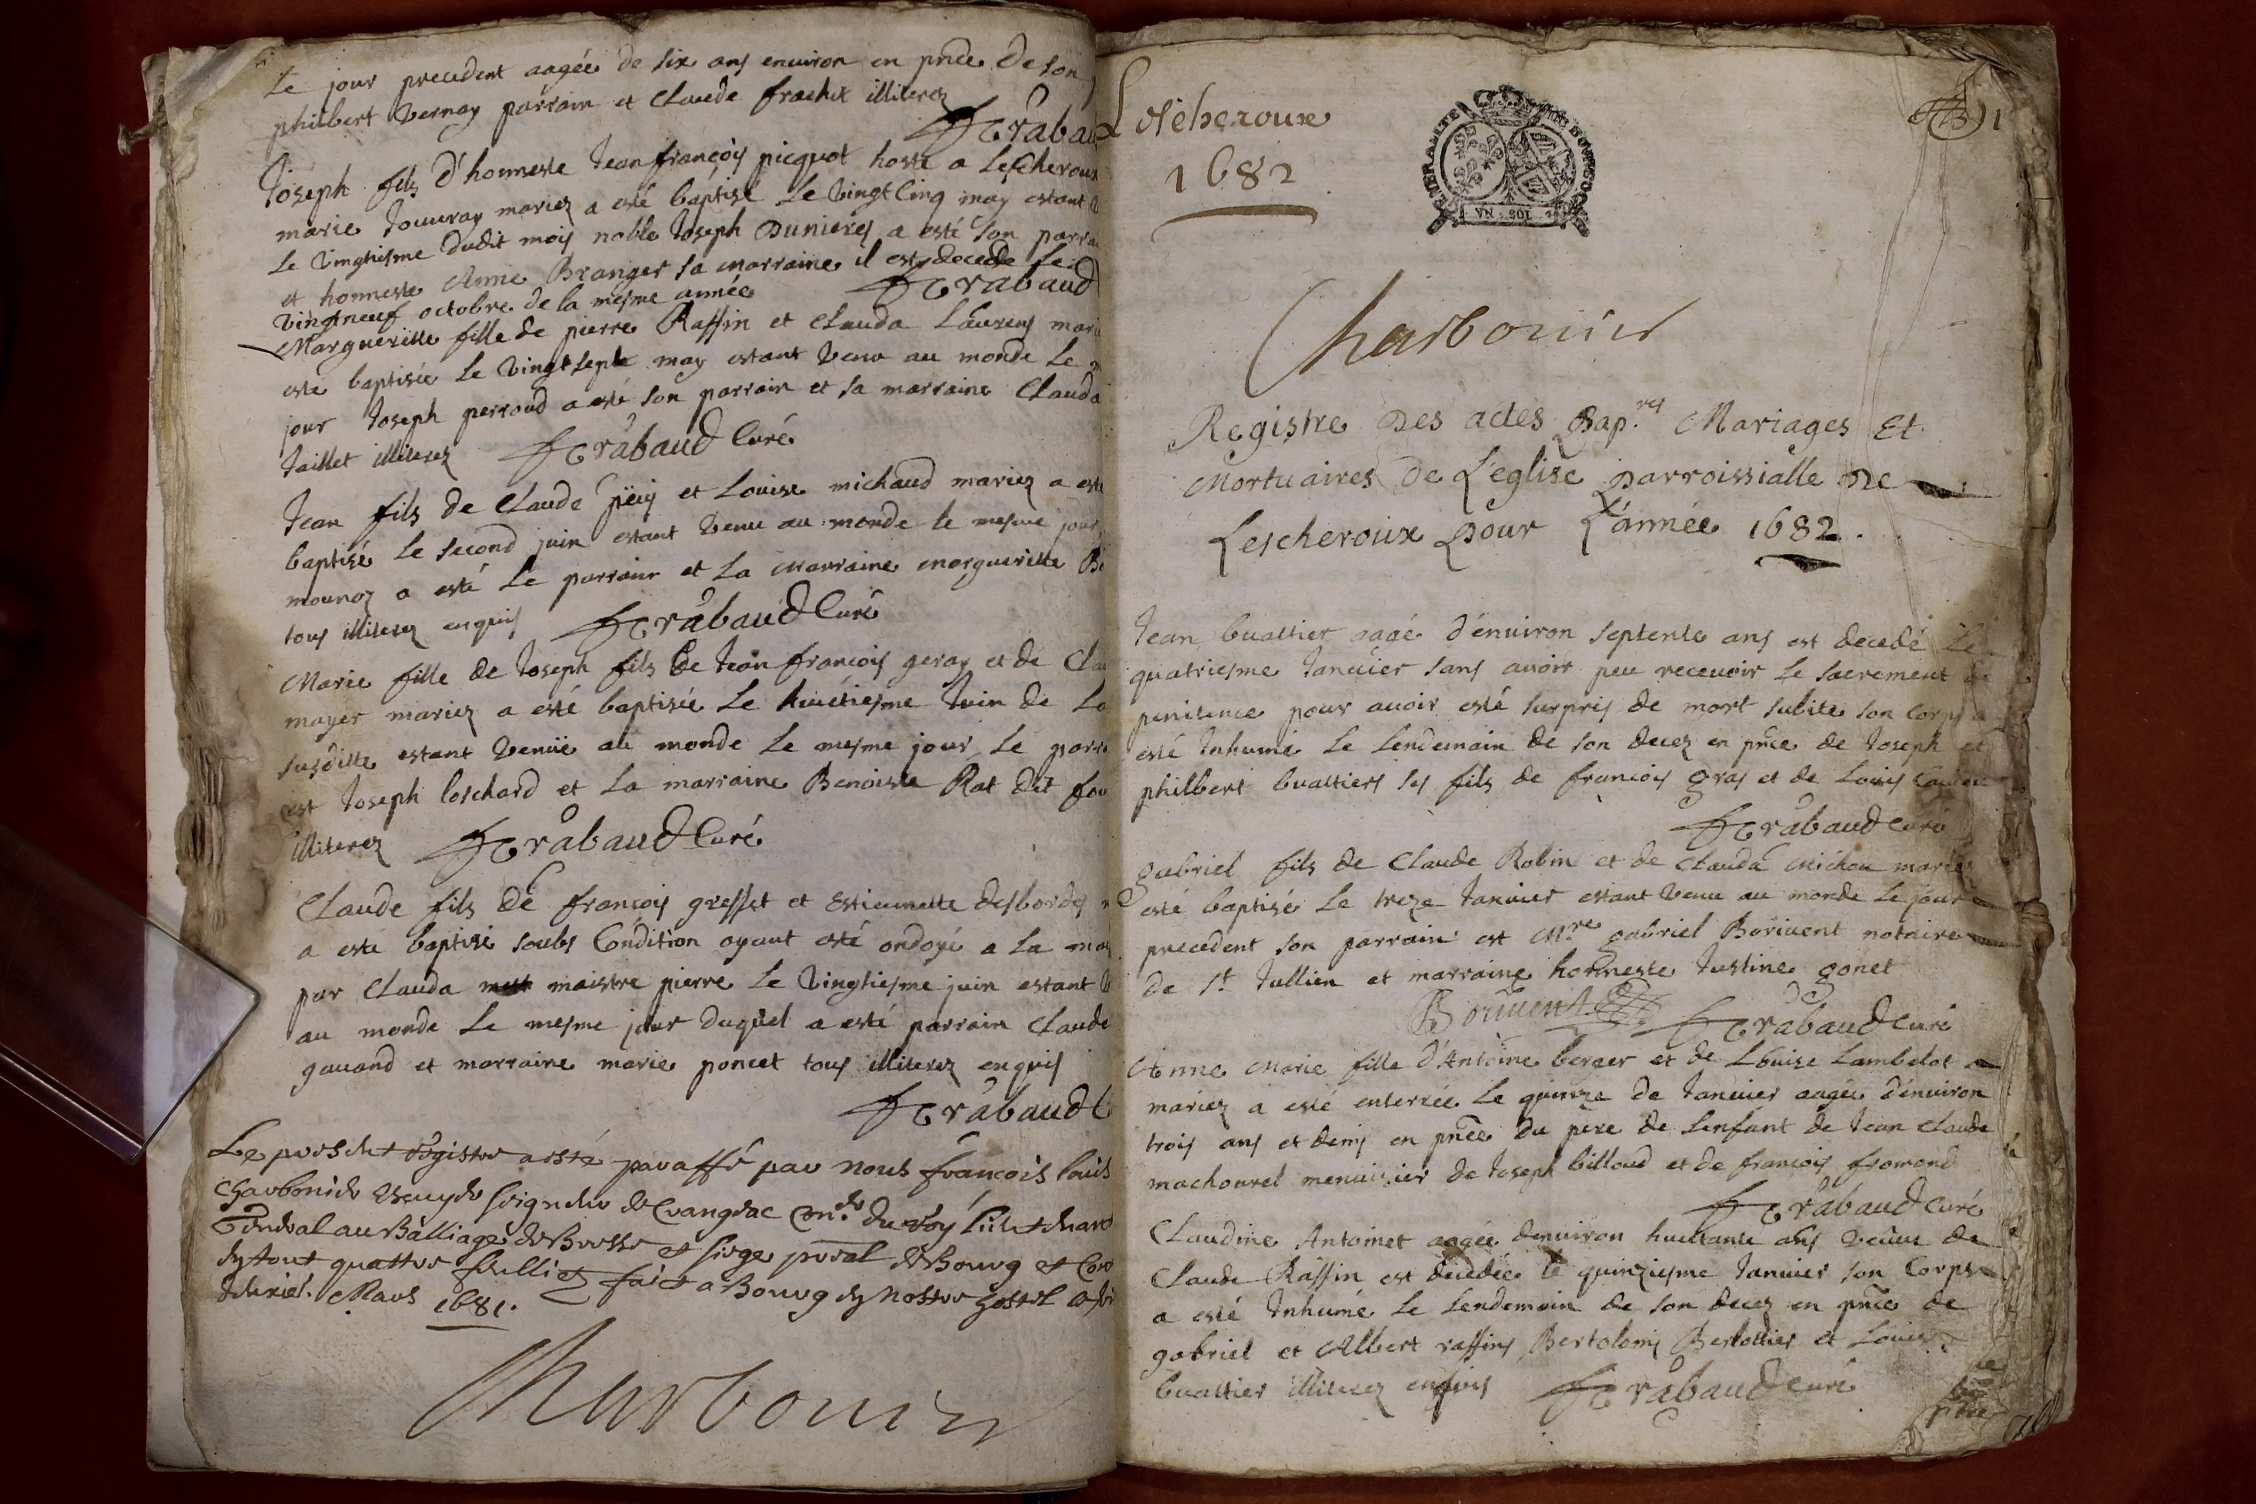 Le jour precedent aagée de six ans environ en pñce de son
philbert Vernay parrain et Claude frachet illiterez
Trabaud
Joseph fils d'honneste Jean françois picquot hoste a Lescheroux
marie Jouuray mariez a esté baptisé Le Vingt Cinq may estant
Le Vingtiesme dudit mois noble Joseph Dunieres a esté son parra
et honneste Anne Branger sa marraine il est decede le
Vingtneuf octobre de la mesme année Trabaud
Margueritte fille de pierre Raffin et Clauda Laurens mari
este baptisée Le Vingt sept may estant venu au monde Le
jour Joseph perroud a esté son parrain et sa marraine Clauda
Jaillet illiterez Trabaud Curé
Jean fils de Claude et Louise michaud mariez a esté
baptisé Le second juin estant venu au monde le mesme jour
mounoz a esté Le parrain et La marraine margueritte
tous illiterez enquis Trabaud Curé
Marie fille de Joseph fils de Jean françois geray et de Cla
mayer mariez a esté baptisée Le huictiesme Juin de La
susditte estant venüe au monde Le mesme jour Le parra
est Joseph loschard et La marraine Benoiste Rat dit
illiterez Trabaud Curé
Claude fils de françois gresset et Estiennette desbordes
a esté baptisé soubs Condition ayant esté ondoyé a La
par Clauda maistre pierre Le Vingtiesme juin estant
au monde Le mesme jour duquel a esté parrain Claude
gauand et marraine marie poncet tous illiterez enquis
Trabaud C
Le present registre a esté paraffé par nous françois louis
Charbonier Escuyer seigneur de Crangeac Con.er du roy Lieutenant
General au Balliage de Bresse et siege pñal de Bourg et
quattre feullietz faict a Bourg en nostre hostel
Mars 1681.
Charbonier
Lescheroux
1682
1
GENERALITE DE BOVRGOGNE
VN SOL
Charbonier
Registre Des actes Bap.res Mariages Et
Mortuaires de L'eglise parroissialle De
Lescheroux pour L'année 1682.
Jean buattier aagé d'enuiron septente ans est decedé Le
quatriesme Januier sans auoir peu receuoir Le sacrement de
penitence pour auoir esté surpris de mort subite son Corps a
esté Inhumé Le Lendemain de son decez en pñce de Joseph et
philbert buattiers ses fils de françois gras et de Louis
Trabaud Curé
gabriel fils de Claude Robin et de Clauda Michou mariez
esté baptisé Le treze Januier estant venu au monde Le jour
precedent son parrain est M.re gabriel Boriuent notaire
de S.t Jullien et marraine honneste Justine gonet
Boriuent Trabaud Curé
Anne Marie fille d'Antoine berger et de Louise Lambelot
mariez a esté enterrée Le quinze de Januier aagée d'enuiron
trois ans et demis en pñce du pere de Lenfant de Jean Claude
machourel menuisier de Joseph billoud et de françois fromond
Trabaud Curé
Claudine Antoinet aagée denuiron huictante ans veûue de
Claude Raffin est decedée le quinziesme Januier son Corps
a esté Inhumé Le Lendemain de son decez en pñce de
gabriel et Albert raffins Bertolomis Berlottier et Louis
buattier illiterez enquis Trabaud Curé